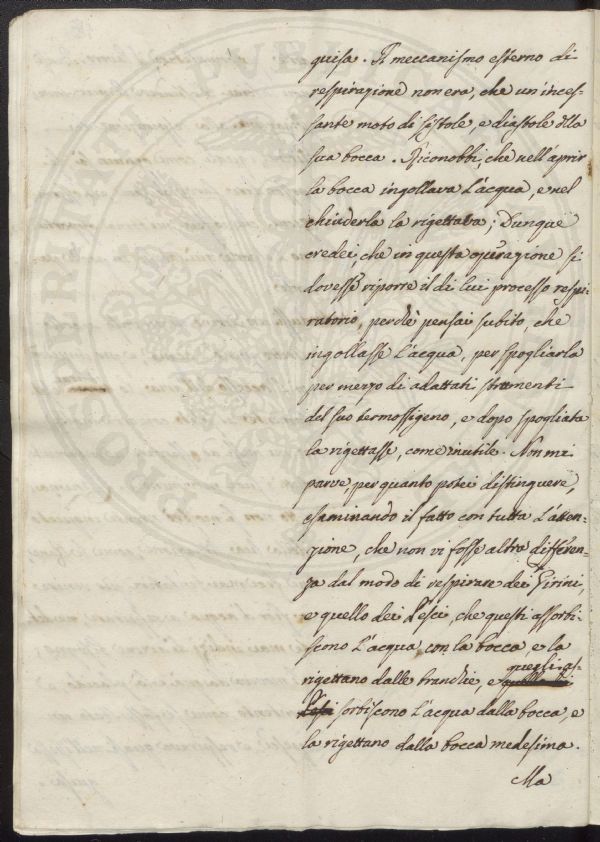 PUBLICAE
PROSPERITATI
guisa. Il meccanismo esterno di
respirazione non era, che un inces-
sante moto di sistole, e diastole dlla
sua bocca. Riconobbi, che nell'aprir
la bocca ingollava l'acqua, e nel
chiuderla la rigettava; Dunque
credei, che in questa operazione si
dovesse riporre il di lui processo respi-
ratorio, perchè pensai subito, che
ingollasse l'acqua, per spogliarla
per mezzo di adattati strumenti
del suo termossigeno, e dopo spogliata
la rigettasse, come inutile. Non mi
parve, per quanto potei distinguere,
esaminando il fatto con tutta l'atten-
zione, che non vi fosse altra differen-
za dal modo di respirare dei Girini,
e quello dei Pesci, che questi assorbi-
scono l'acqua con la bocca, e la
rigettano dalle branchie, e quegli as-
sorbiscono l'acqua dalla bocca, e
la rigettano dalla bocca medesima.
Ma